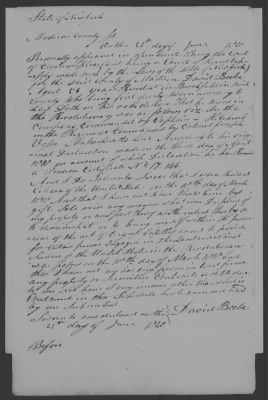 State of New York
Madison County Ss
On the 21st day of June 1820
Personally appeared in open Court Being the Court
of Common Pleas and being a Court of Record
made such by the Laws of the State of New York
for the said County of Madison David Beebe
Aged years Resident in Brookfield in said
County who being first duly sworn according to
Law Doth on his oath declare That he served in
the Revolutionary war as follows
Company Commanded by Captain
in the Regiment Commanded by Colonel Joseph
Vose Massachusetts Line
Declaration made on the third day of April
1818 on account of which Declaration he has Received
a Pension Certificate No 17.144
And I Do solemnly swear that I was a Resident
Citizen of the United States on the 18th day of March
1818 And that I have not since that time by
gift Sale or in any manner whatever Disposed of
my property or any part thereof with intent thereby so
to diminish it as to bring myself within the
provisions of the act of Congress Entitled an act to provide
for Certain persons Engaged in the land and Naval
Service of the United States in the Revolutionary
war Passed on the 18th day of March 1818 And
that I have not nor has any person in trust for me
any property or securities Contracts or debts due
to me Nor have I any income other than what is
Contained in the Schedule hereto annexed and
by me Subscribed
Sworn to and declared on the David Beebe
21st day of June 1820
Before